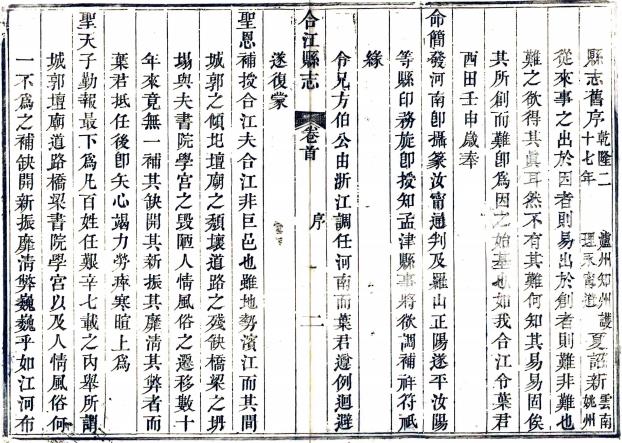 縣志舊序 乾隆二十七年 瀘州知州護理永寧道 夏詔新 雲南姚州
從來事之出於因者則易出於創者則難非難也
難之欲得其眞耳然不有其難何知其易易固俟
其所創而難卽爲因之始基也如我合江令葉君
酉田壬申歲奉
命簡發河南卽攝篆汝甯通判及羅山正陽遂平汝陽
等縣印務旋卽授知孟津縣事將欲調補祥符祇
緣
令兄方伯公由浙江調任河南而葉君遵例迴避
遂復蒙
合江縣志 卷首 序 二
聖恩補授合江夫合江非巨邑也雖地勢濱江而其間
城郭之傾圮壇廟之頹壞道路之殘缺橋梁之坍
塌與夫書院學宮之毀陋人情風俗之遷移數十
年來竟無一補其缺開其新振其靡清其弊者而
葉君抵任後卽矢心竭力勞瘁寒暄上爲
聖天子勤報最下爲凡百姓任艱辛七載之內舉所謂
城郭壇廟道路橋梁書院學宮以及人情風俗何
一不爲之補缺開新振靡清弊巍巍乎如江河布